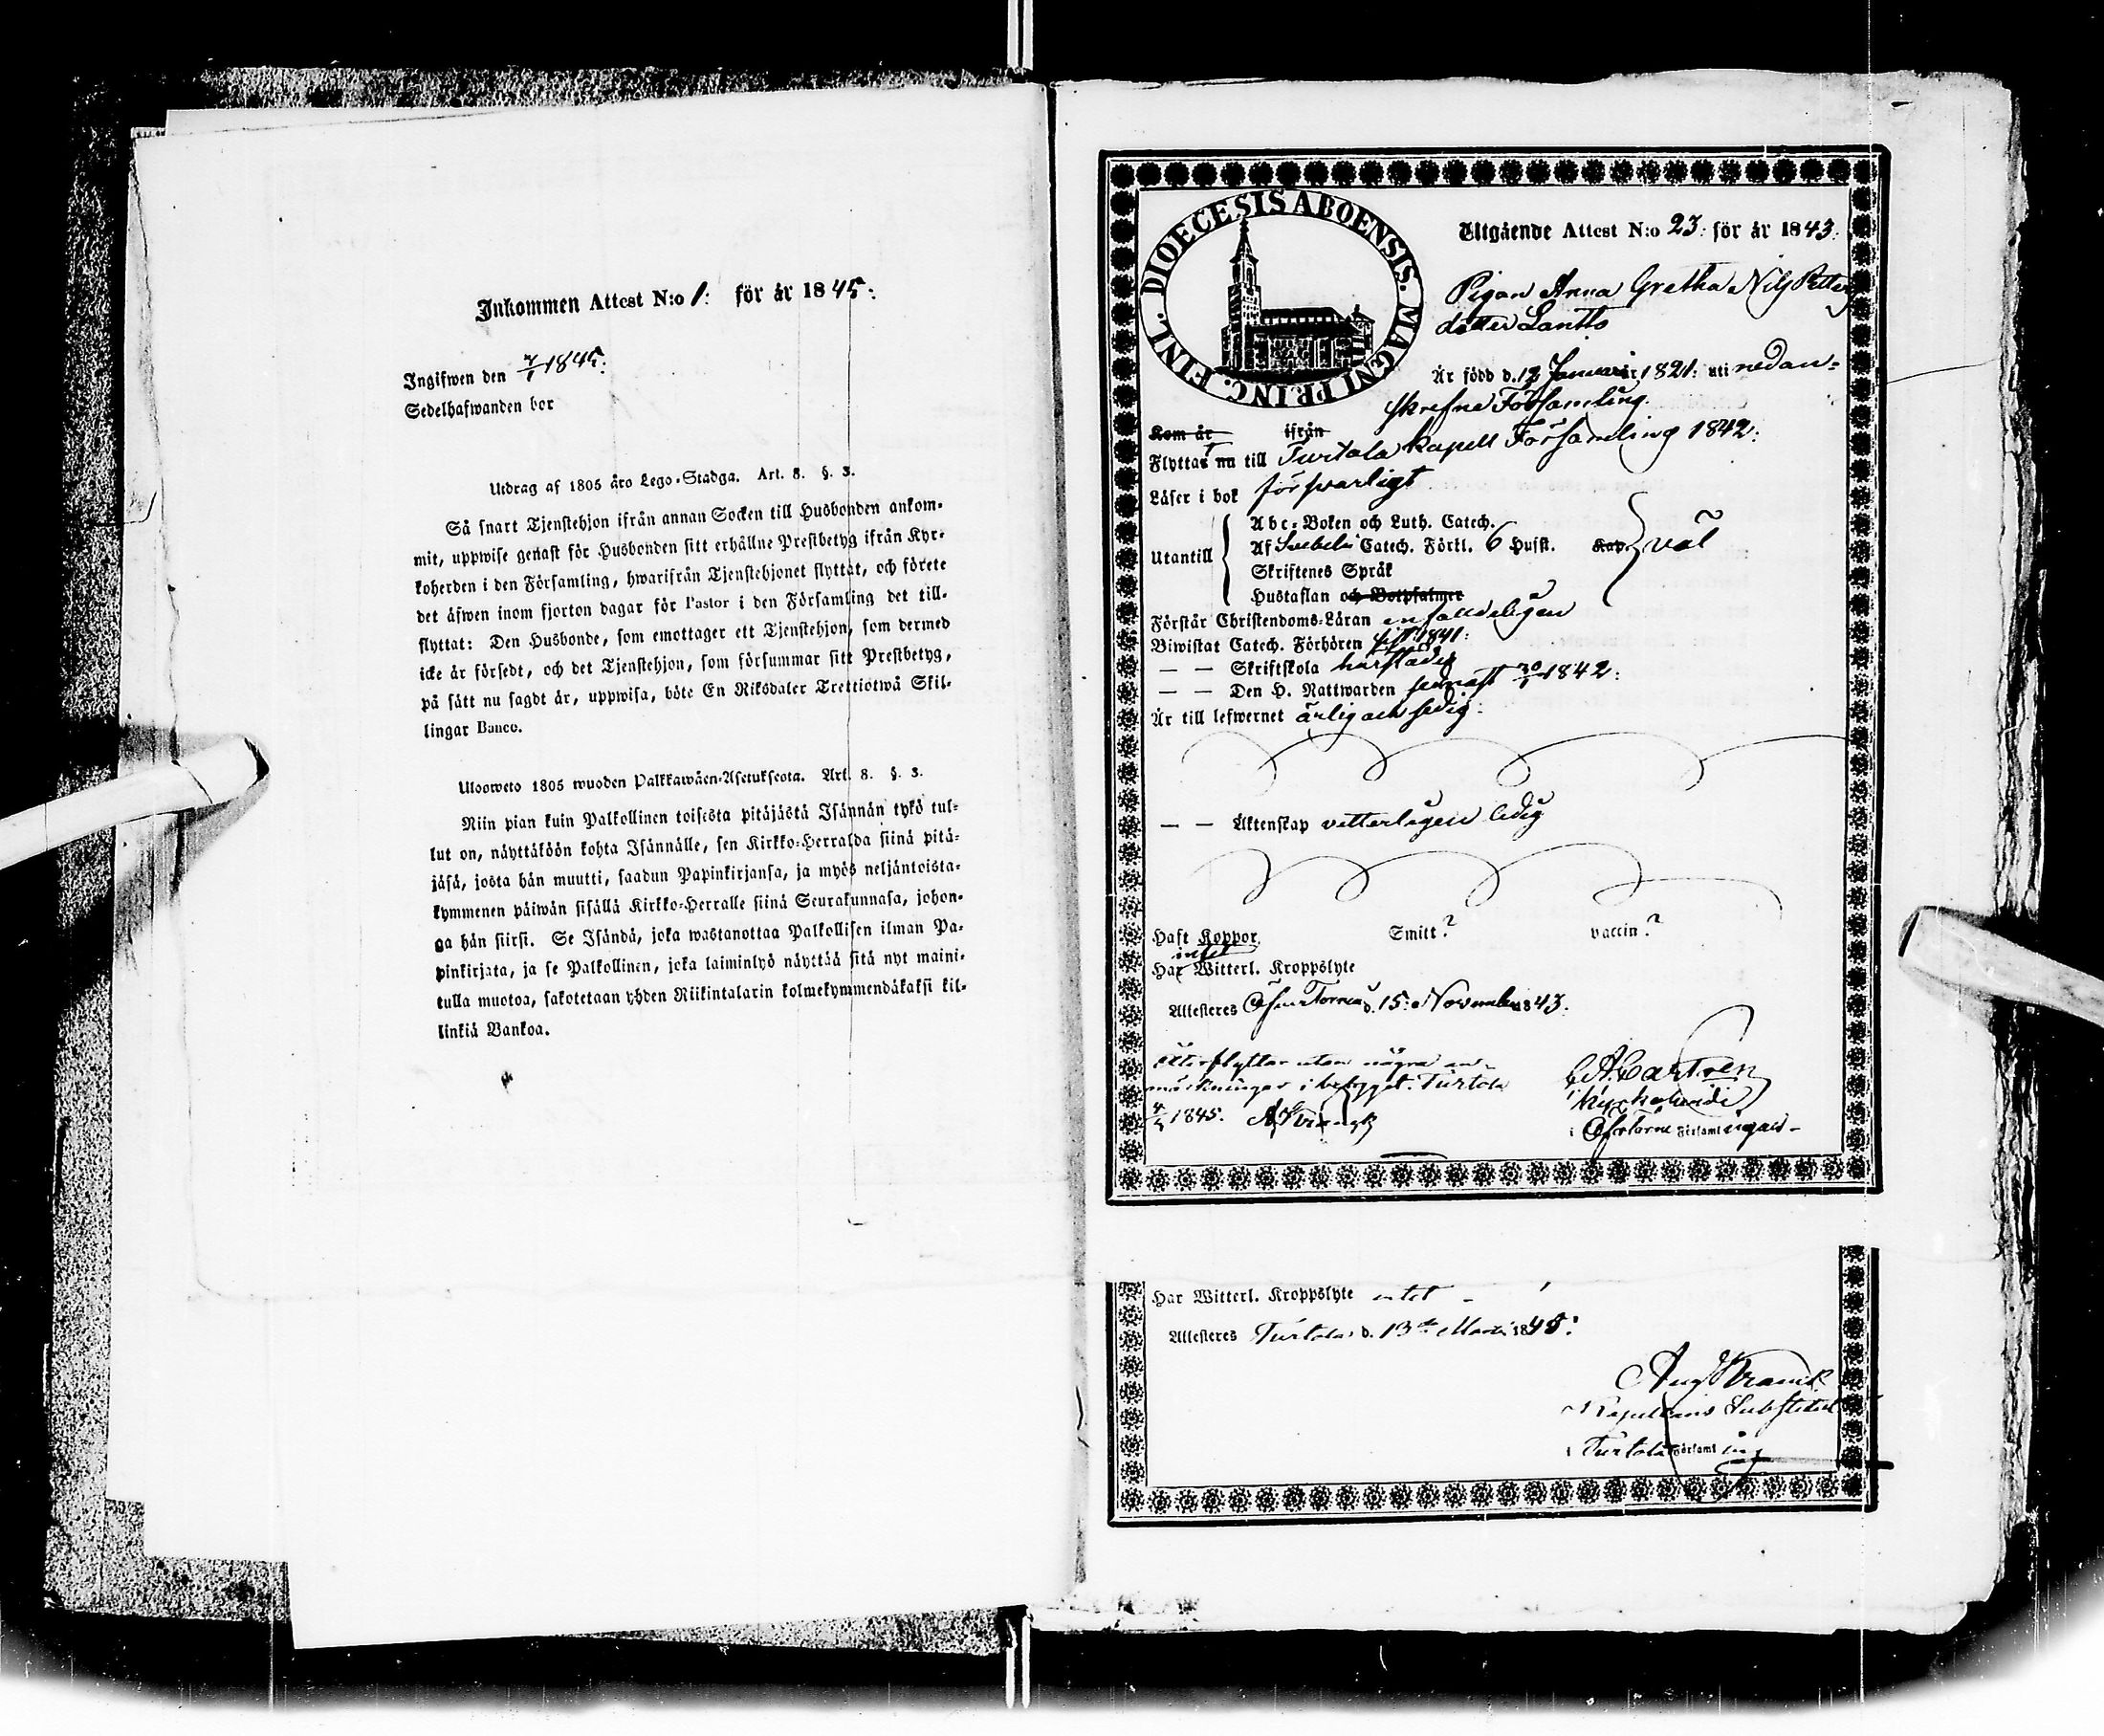 Inkommen Attest N:o 1: för år 1845:
Ingifwen den 7/1 1845:
Sedelhafwanden bor
Utdrag af 1805 åro Lego-Stadga. Art. 8. §. 3.
Så snart Tjenstehjon ifrån annan Socken till Husbonden ankom-
mit, uppwise genast för Husbonden sitt erhållne Prestbetyg ifrån Kyr-
koherden i den Församling, hwarifrån Tjenstehjonet flyttat, och förete
det äfwen inom fjorton dagar för Pastor i den Församling det till-
flyttat: Den Husbonde, som emottager ett Tjenstehjon, som dermed
icke är försedt, och det Tjenstehjon, som försummar sitt Prestbetyg,
på sätt nu sagdt är, uppwisa, böte En Riksdaler Trettiotwå Skil-
lingar Banco.
Ulooweto 1805 wuoden Palkkawäen-Asetuksesta. Art. 8. §. 3.
Niin pian kuin Palkollinen toisesta pitäjästä Isännän tykö tul-
lut on, näyttäköön kohta Isännälle, sen Kirkko-Herralda siinä pitä-
jäsä, josta hän muutti, saadun Papinkirjansa, ja myös neljäntoista-
kymmenen päiwän sisällä Kirkko-Herralle siinä Seurakunnasa, johon-
ga hän siirsi. Se Isändä, joka wastanottaa Palkollisen ilman Pa-
pinkirjata, ja se Palkollinen, joka laiminlyö näyttää sitä nyt maini-
tulla muotoa, sakotetaan yhden Riikintalarin kolmekymmendäkaksi kil-
linkiä Bankoa.
DIOECESIS ABOENSIS. MAGNI PRINC. FINL.
Utgående Attest N:o 23: för år 1843:
Pigan Anna Gretha Nils Petters
dotter Lantto
Är född d. 12 Januari år 1821: uti nedan-
skrefne Församling.
Kom år ifrån
Flyttat nu till Turtola Kapell Församling 1842:
Läser i bok försvarligt
Utantill
Abc-Boken och Luth. Catech.
Af Svebelii Catech. Förkl. 6 Hufst. Kap. väl
Skriftenes Språk
Hustaflan och Botpsalmer
Förstår Christendoms-Läran enfaldeligen
Biwistat Catech. Förhören sist 1841:
— — Skriftskola härstädes
— — Den H. Nattwarden senast 30/1 1842:
Är till lefwernet ärlig och sedig:
— — Äktenskap vitterligen ledig
Haft Koppor. Smitt? vaccin?
intet
Har Witterl. Kroppslyte
Attesteres Öfver Torneå d. 15: November 1843.
Återflyttar utan några an-
märkningar i betyget. Turtola
1845.
C A Castren
Kyrkoherde
i Öfvertorne Församlingar-
Har Witterl. Kroppslyte intet -
Attesteres Turtola d. 13de Mars 1845:
Kapellans Substitut
i Turtola Församling